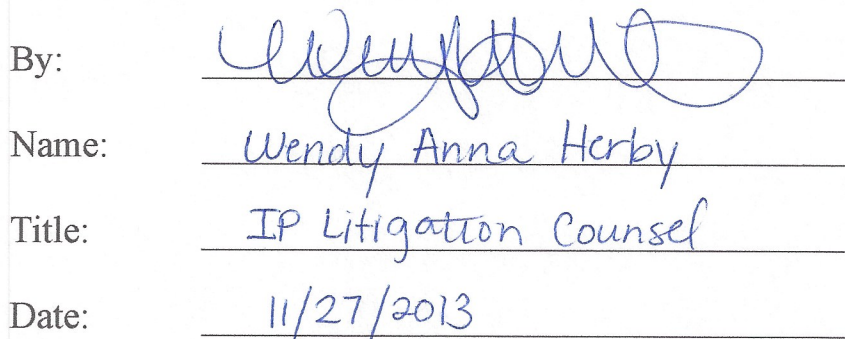 By:
Name: Wendy Anna Herby
Title: IP Litigation Counsel
Date: 11/27/2013